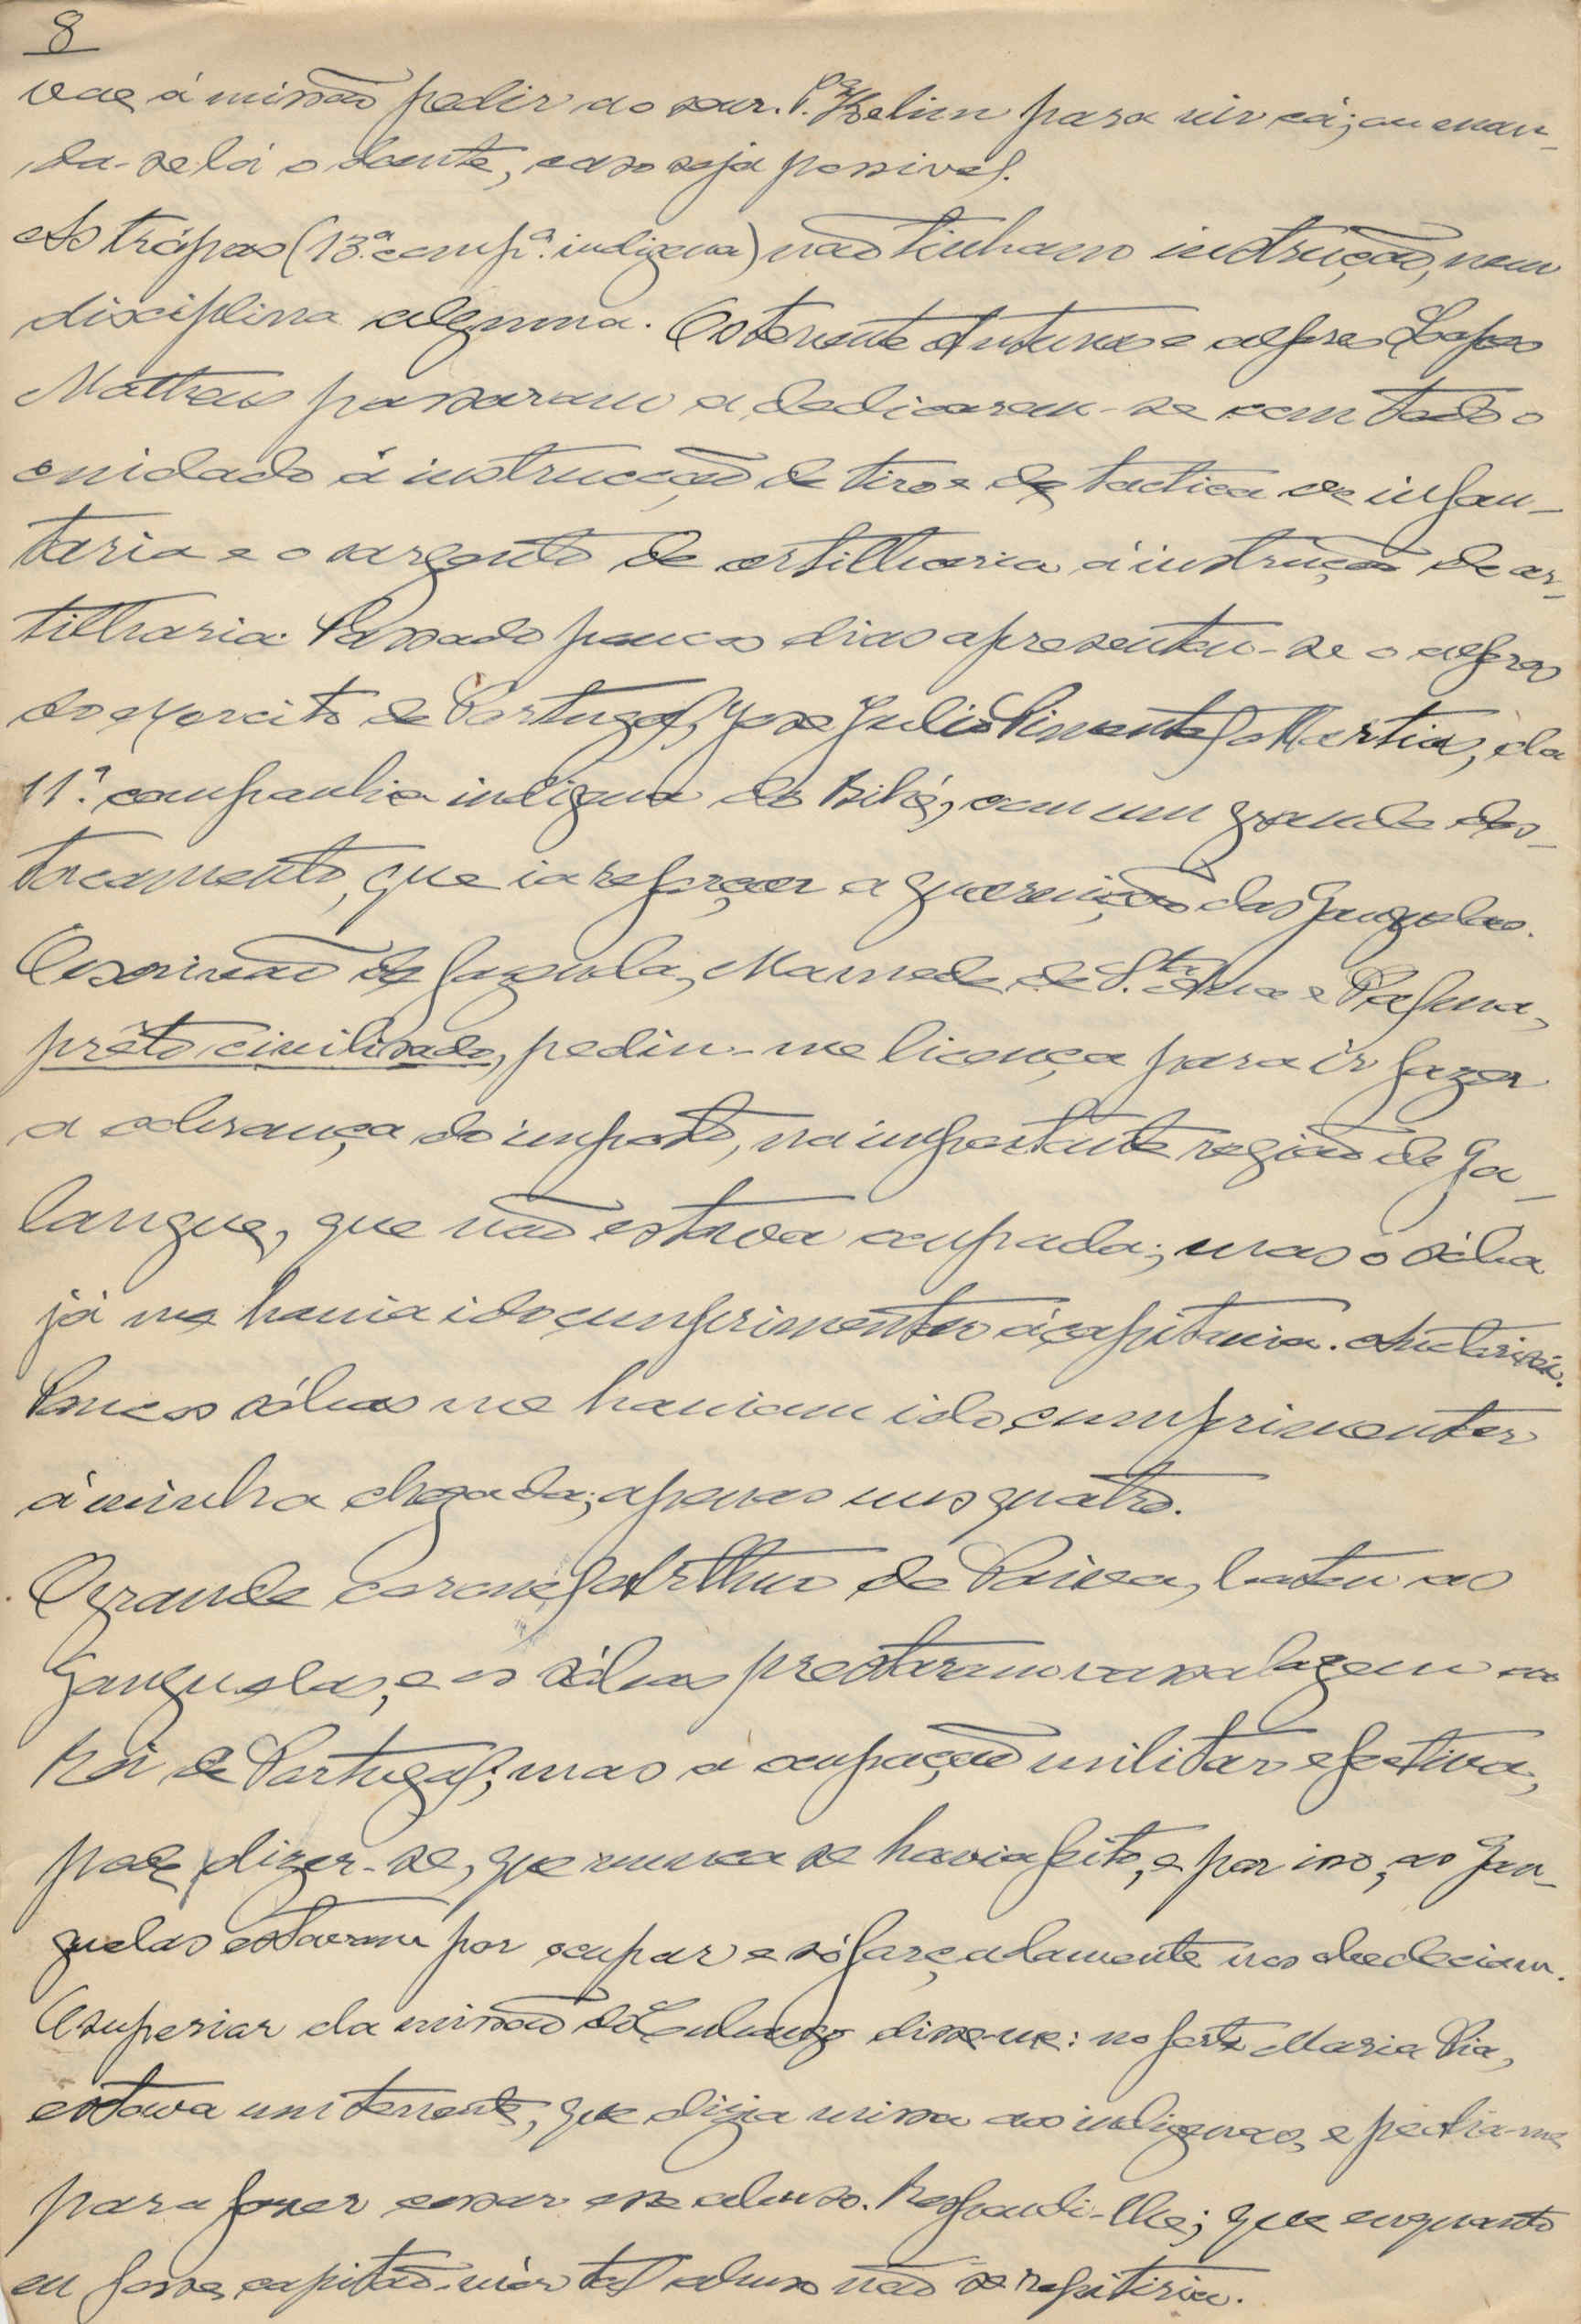 8
vae á missão pedir ao snr. P.e Kelim para vir cá; ou man-
da-se lá o doente, caso seja possivel.
As trópas (13.ª comp.ª indigena) não tinham instrução, nem
disciplina alguma. Os tenente Antunes e alferes Lopes
Matheus passaram a dedicarem-se com todo o
cuidado á instrucção de tiro e de tactica de infan-
taria e o sargento de artilharia á instrução de ar-
tilharia. Passado poucos dias apresentou-se o alferes
do exercito de Portugal, José Julio Pimentel Martins, da
11.ª companhia indigena do Bihé, com um grande des-
tacamento, que ia reforçar a guarnição das Ganguelas.
O escrivão de fazenda, Mamede de S.ta Ana e Palma,
prêto civilisado, pediu-me licença para ir fazer
a cobrança do imposto, na importante região de Ga-
langue, que não estava ocupada; mas o sóba
já me havia ido cumprimentar á capitania. Auctorisei.
Poucos sóbas me haviam ido cumprimentar
á minha chegada; apenas uns quatro.
O grande coronel Arthur de Paiva, bateu as
Ganguelas, e os sóbas prestaram vassalagem ao
Rei de Portugal; mas a ocupação militar efectiva,
pode dizer-se, que nunca se havia feito, e por isso, as Gan-
guelas estavam por ocupar e só forçadamente nos obedeciam.
O superior da missão do Cubango disse-me: no forte Maria Pia,
estava um tenente, que dizia missa aos indigenas, e pedia-me
para fazer cessar esse abuso. Respondi-lhe; que enquanto
eu fosse capitão-mór tal abuso não se repitiria.